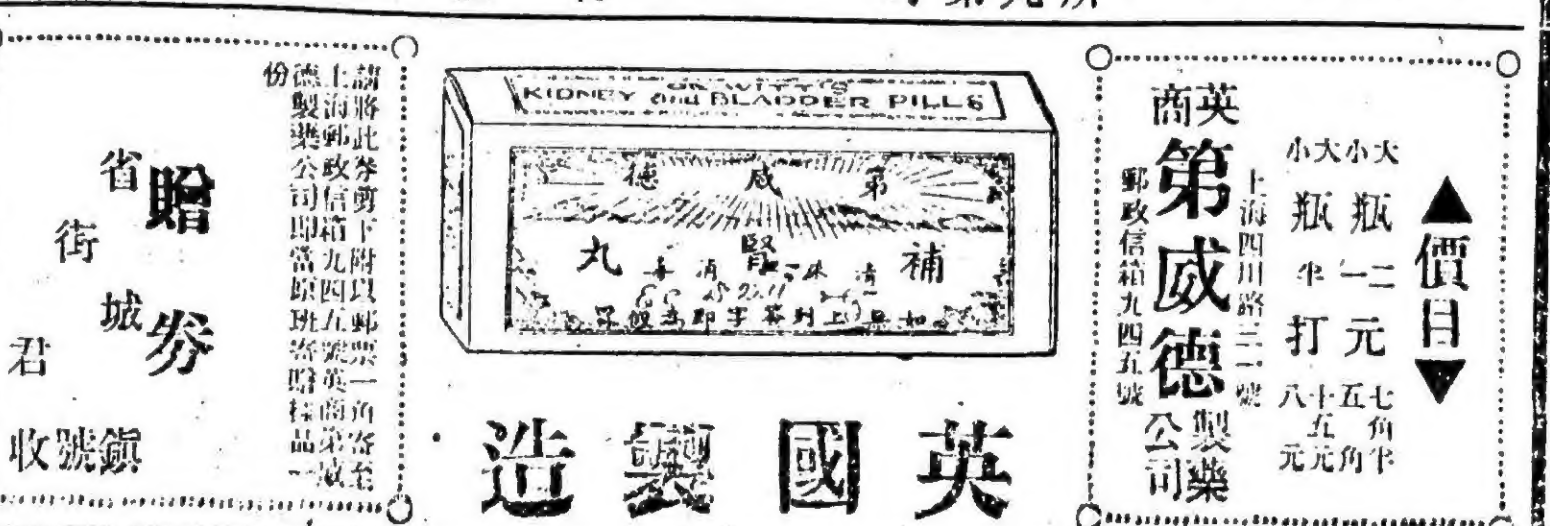 價目
大瓶二元七角半
小瓶一元五角
大瓶半打十五元
小瓶半打八元
上海四川路三一號
英商第威德製藥公司
郵政信箱九四五號
KIDNEY and BLADDER PILLS
第威德
補腎丸
英國製造
請將此券剪下附以郵票一角寄至
上海郵政信箱九四五號英商第威
德製藥公司即當原班寄贈樣品一
份
贈券
省
街
城
君
鎮
號
收